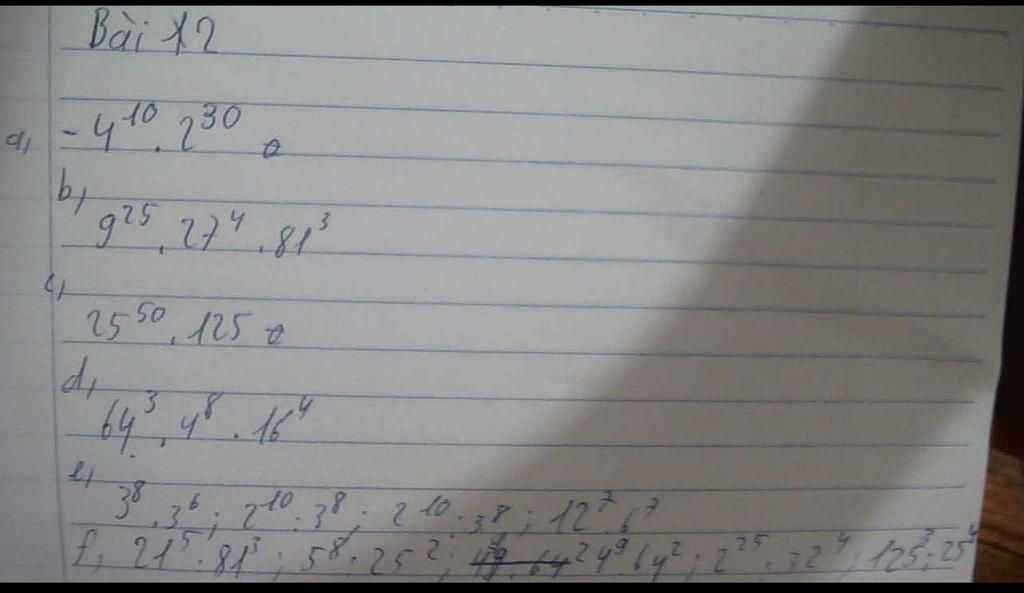 Bài 12
a, - 4^10 . 2^30
b,
9^25 . 27^4 . 81^3
c,
25^50 . 125
d,
64^3 . 4^8 . 16^4
e,
3^8 . 3^6 ; 2^10 . 3^8 ; 2^10 : 3^8 ; 12^7 . 6^7
f, 21^5 . 81^3 ; 5^8 . 25^2 ; 4^9 . 64^2 ; 2^25 : 32^4 ; 125^3 : 25^4